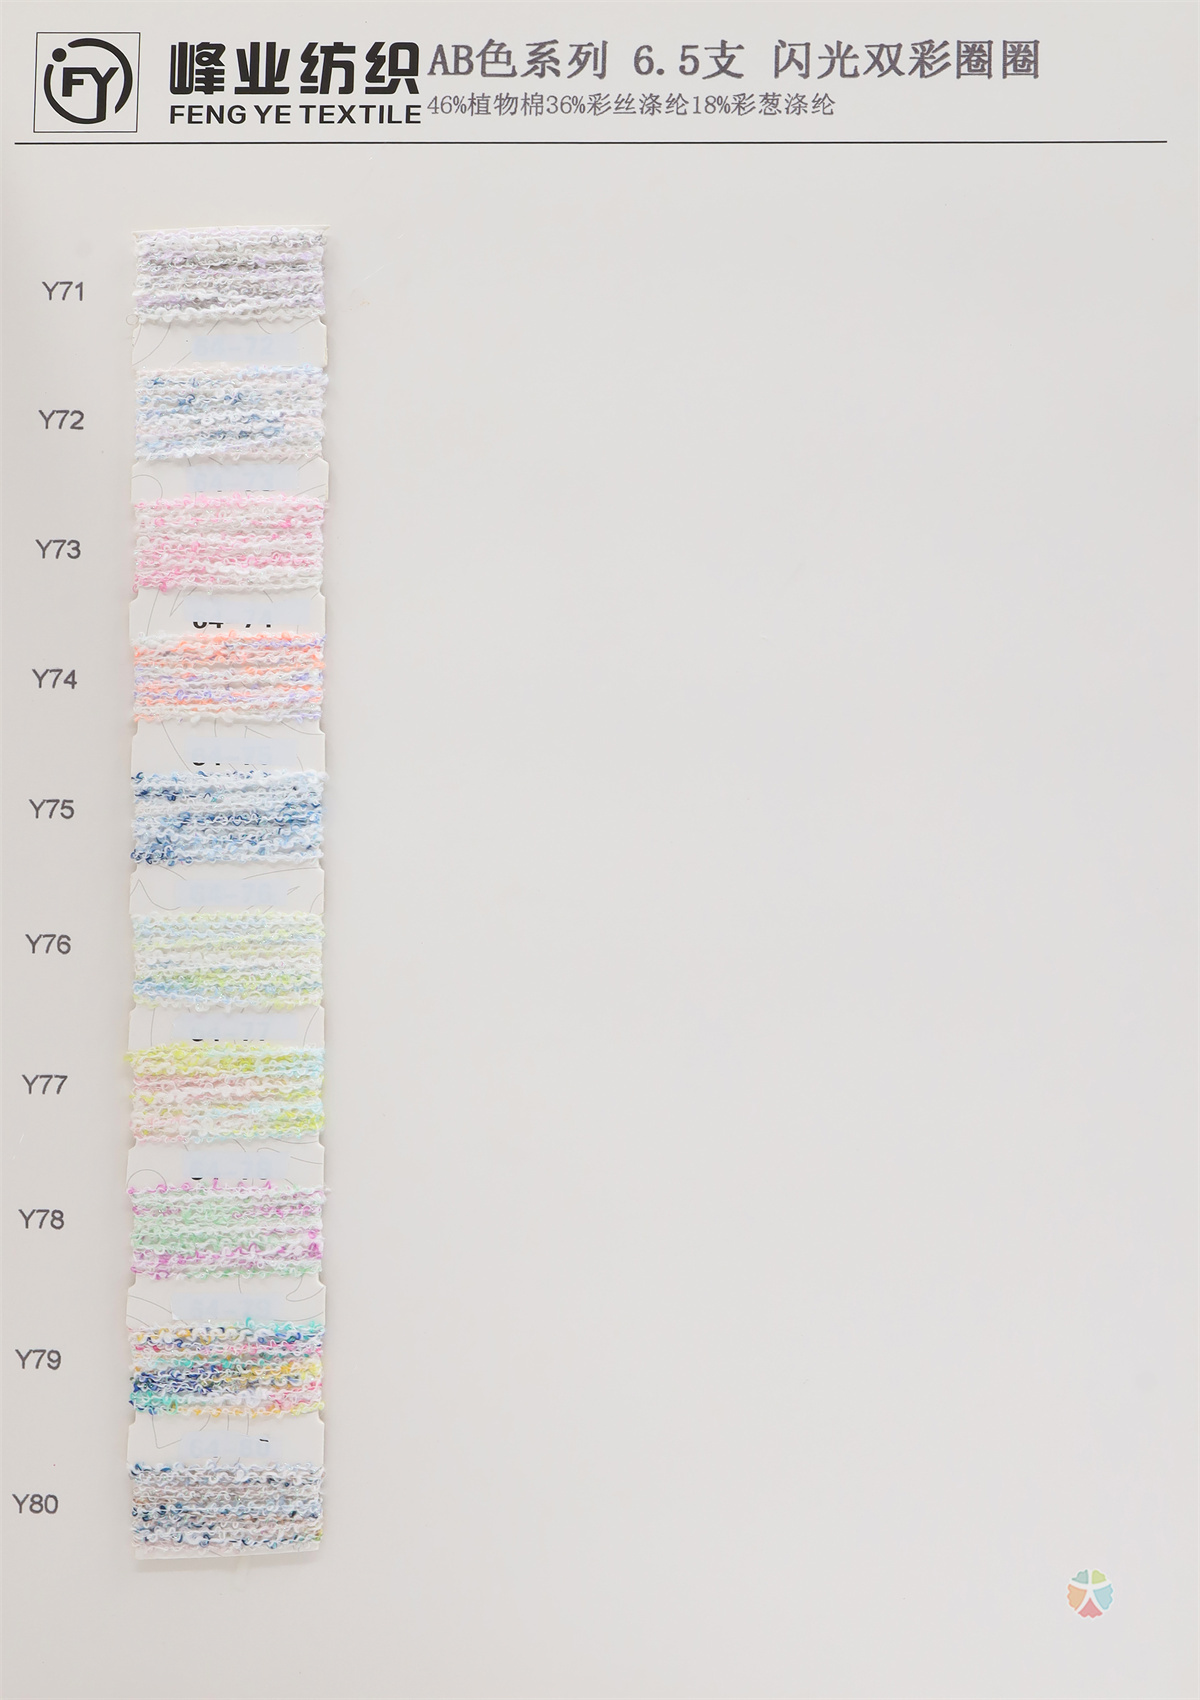 FY
峰业纺织
FENG YE TEXTILE
AB色系列 6.5支 闪光双彩圈圈
46%植物棉36%彩丝涤纶18%彩葱涤纶
Y71
Y72
Y73
Y74
Y75
Y76
Y77
Y78
Y79
Y80